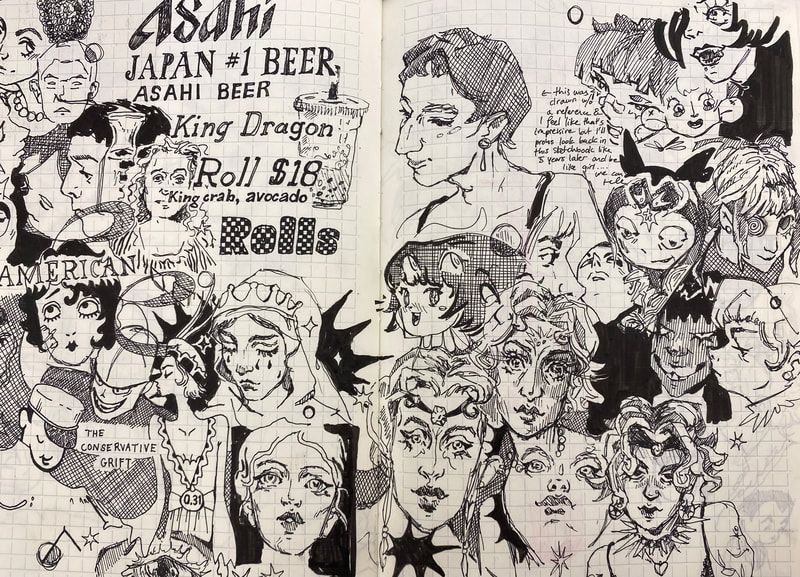 Asahi
JAPAN #1 BEER
ASAHI BEER
King Dragon
Roll $18
"King crab, avocado"
Rolls
AMERICAN
THE
CONSERVATIVE
GRIFT
0.31
← this was
drawn w/o
a reference &
I feel like that's
impressive but I'll
probs look back in
this sketchbook like
5 years later and be
like girl..
we can
tell